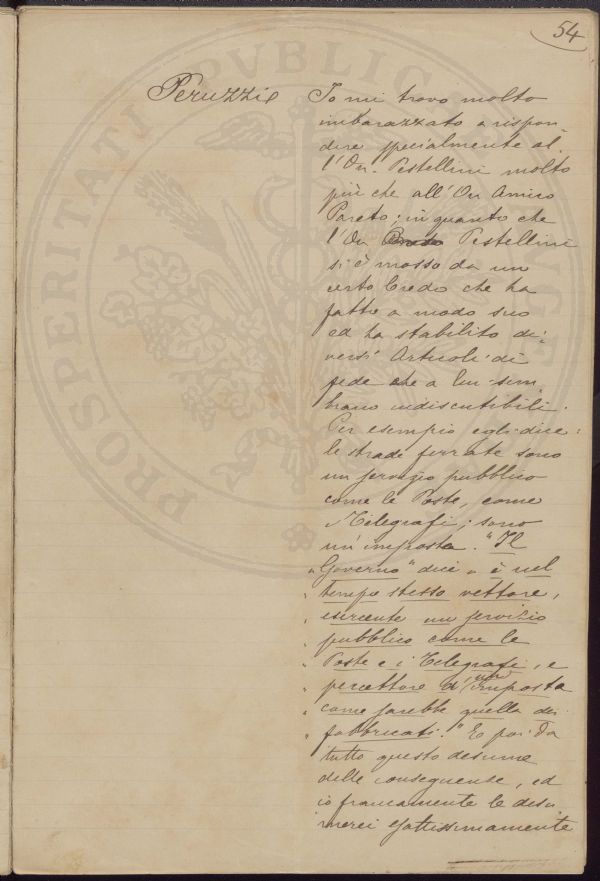 54
Peruzzi
Io mi trovo molto
imbarazzato a rispon
dere specialmente al
l'On. Pestellini molto
più che all'On Amico
Pareto; in quanto che
l'On Pestellini
si è mosso da un
certo Credo che ha
fatto a modo suo
ed ha stabilito di-
versi Articoli di
fede che a lui sem
brano indiscutibili.
Per esempio egli dice:
le strade ferrate sono
un servizio pubblico
come le Poste, come
i Telegrafi; sono
un'imposta. "Il
"Governo" dice "è nel
"tempo stesso vettore,
"esercente un servizio
"pubblico come le
"Poste e i Telegrafi, e
"percettore d'un'imposta
"come sarebbe quella dei
"fabbricati." E poi da
tutto questo desume
delle conseguenze, ed
io francamente le desu
merei esattissimamente
PROSPERITATI PUBLICAE